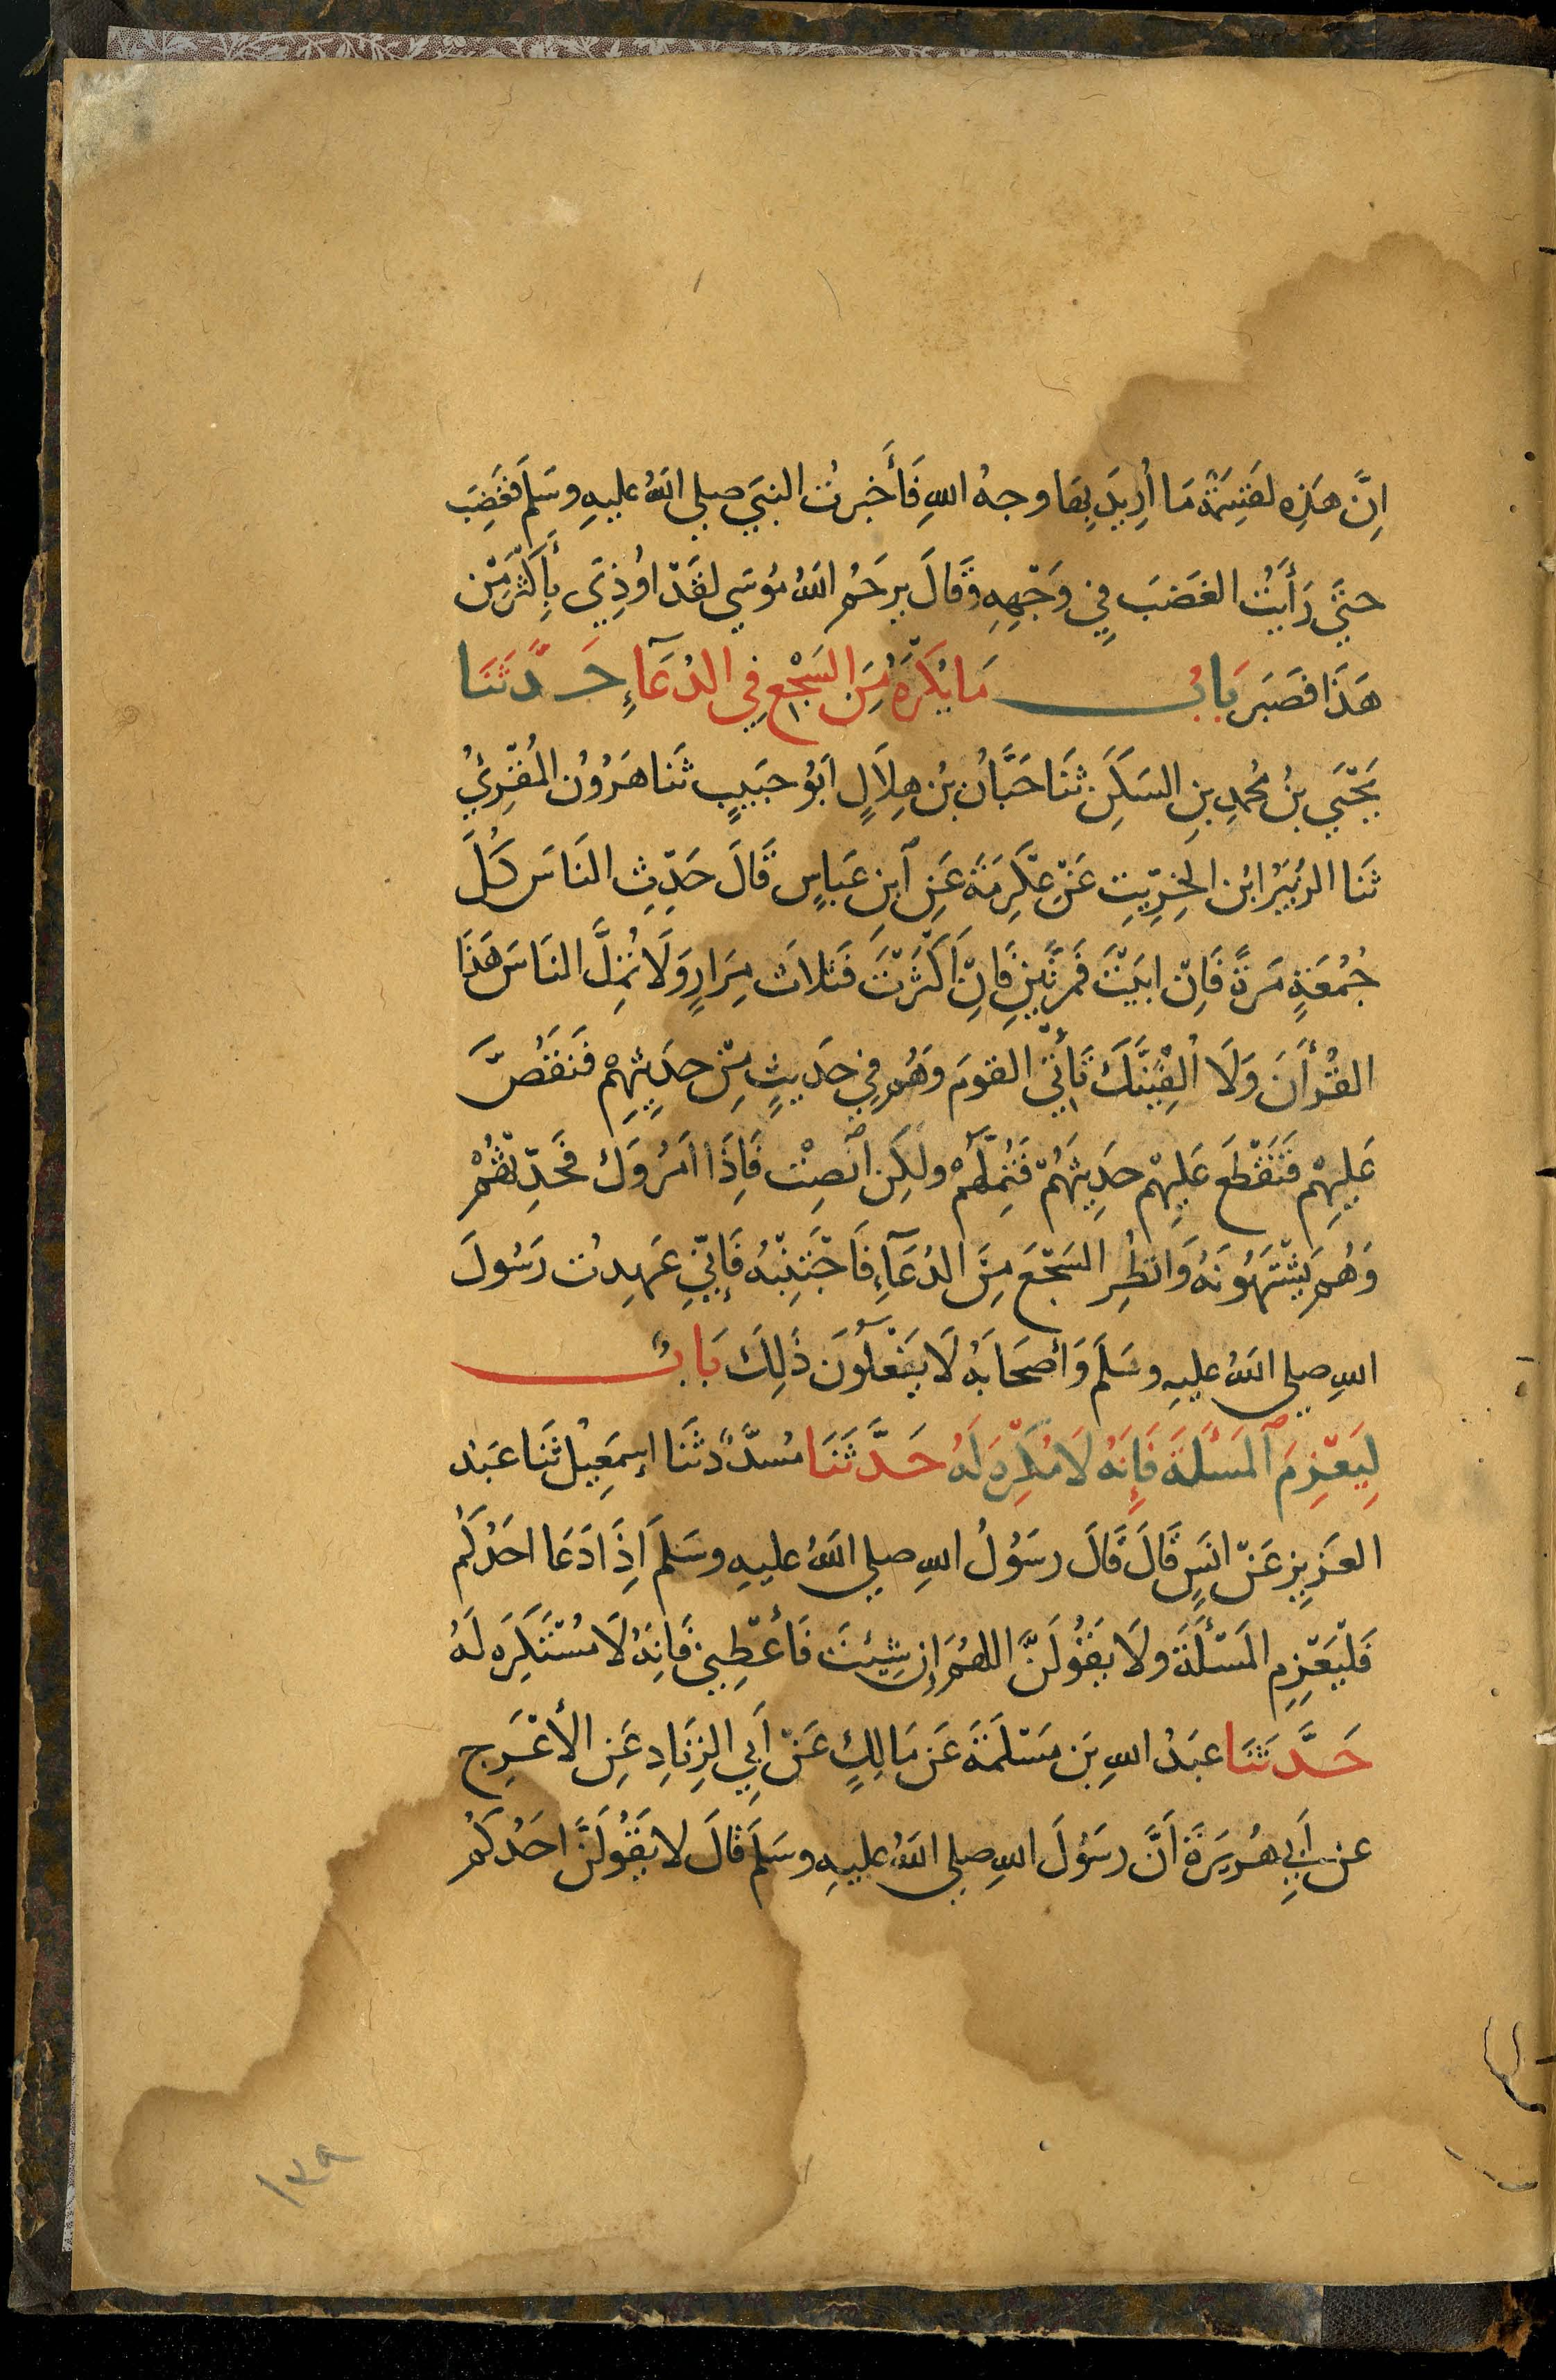 اِنَّ هَذِهِ لَقِسْمَةٌ مَا اُرِيدَ بِهَا وجهُ اللهِ فَأَخبرتُ النبيَ صلى اللهُ عليهِ وسَلم فَغَضِبَ
حتَّى رَأَيتُ الغَضَبَ فِي وَجْهِهِ وَقَالَ يرحَمُ اللهُ مُوسَى لقَدْ اوُذِيَ بِأَكثَرَ مِنْ
هَذَا فصَبَر بَابُ مَا يُكْرَهُ مِنَ السَجْعِ فِي الدُعَآءِ حَدَّثَنَا
يَحْيَى بنُ مُحمدِ بنِ السَكَنِ ثَنَا حَبَّانُ بْنُ هِلَالٍ اَبُو حبَيبٍ ثَنا هَرُونُ المُقْرِئُ
ثَنَا الزبَيْرُ ابْنُ الخِرِّيتِ عَنْ عِكْرِمَةَ عَنِ ابنِ عَباسٍ قَالَ حَدِّثِ النَاسَ كُلَّ
جُمُعَةٍ مَرةً فَاِنْ ابَيْتَ فَمرَتَينِ فَاِنْ اَكْثَرْتَ فَثلاثَ مِرَارٍ وَلَا تُمِلَّ النَاسَ هَذَا
القُرْأَنَ وَلَا اُلْفِيَنَّكَ تَأْتِي القومَ وَهُم فِي حَديثٍ مِنْ حدِيثِهِمْ فَتَقُصَّ
عَليهِمْ فَتَقْطَعَ عَليهِمْ حدِيثَهُمْ فَتُمِلَّهُمْ ولَكِن اَنْصِتْ فَاِذَا اَمَرُوكَ فَحَدِّثْهُمْ
وَهُم يَشْتَهُونَهُ وَانظُرِ السَجْعَ مِنَ الدُعَآءِ فَاجْتَنِبْهُ فَإِنِّي عَهِدتُ رَسُولَ
اللهِ صلى اللهُ عليهِ وسَلَم وَأصحَابَهُ لَا يَفْعَلُونَ ذَلِكَ بَابٌ
لِيَعْزِمَ المَسْأَلَةَ فَإِنَهُ لَا مُكْرِهَ لَهُ حَدَّثَنَا مُسدَّدٌ ثَنَا إسمَعِيلُ ثَنا عَبدُ
العَزِيزِ عَنْ انَسٍ قَالَ قَالَ رسَوُلُ اللهِ صلى اللهُ عليهِ وسَلمَ اِذَا دَعَا احَدُكُم
فَلْيَعْزِمِ المَسْئَلَةَ ولَا يَقُولَنَّ اللهُمَ إِن شِئتَ فَأَعْطِنِي فَاِنَهُ لَا مُسْتَكرِهَ لَهُ
حَدَّثَنَا عبَدُ اللهِ بن مَسْلَمَةَ عَن مَالِكٍ عَنْ اَبِي الزِنَادِ عَنِ الأعْرَجِ
عن أَبِي هُرَيرَةَ اَنَّ رسَوُلَ اللهِ صلى اللهُ عليهِ وسَلَم قَالَ لا يَقُولَنَّ احَدُكمُ
١٣٩